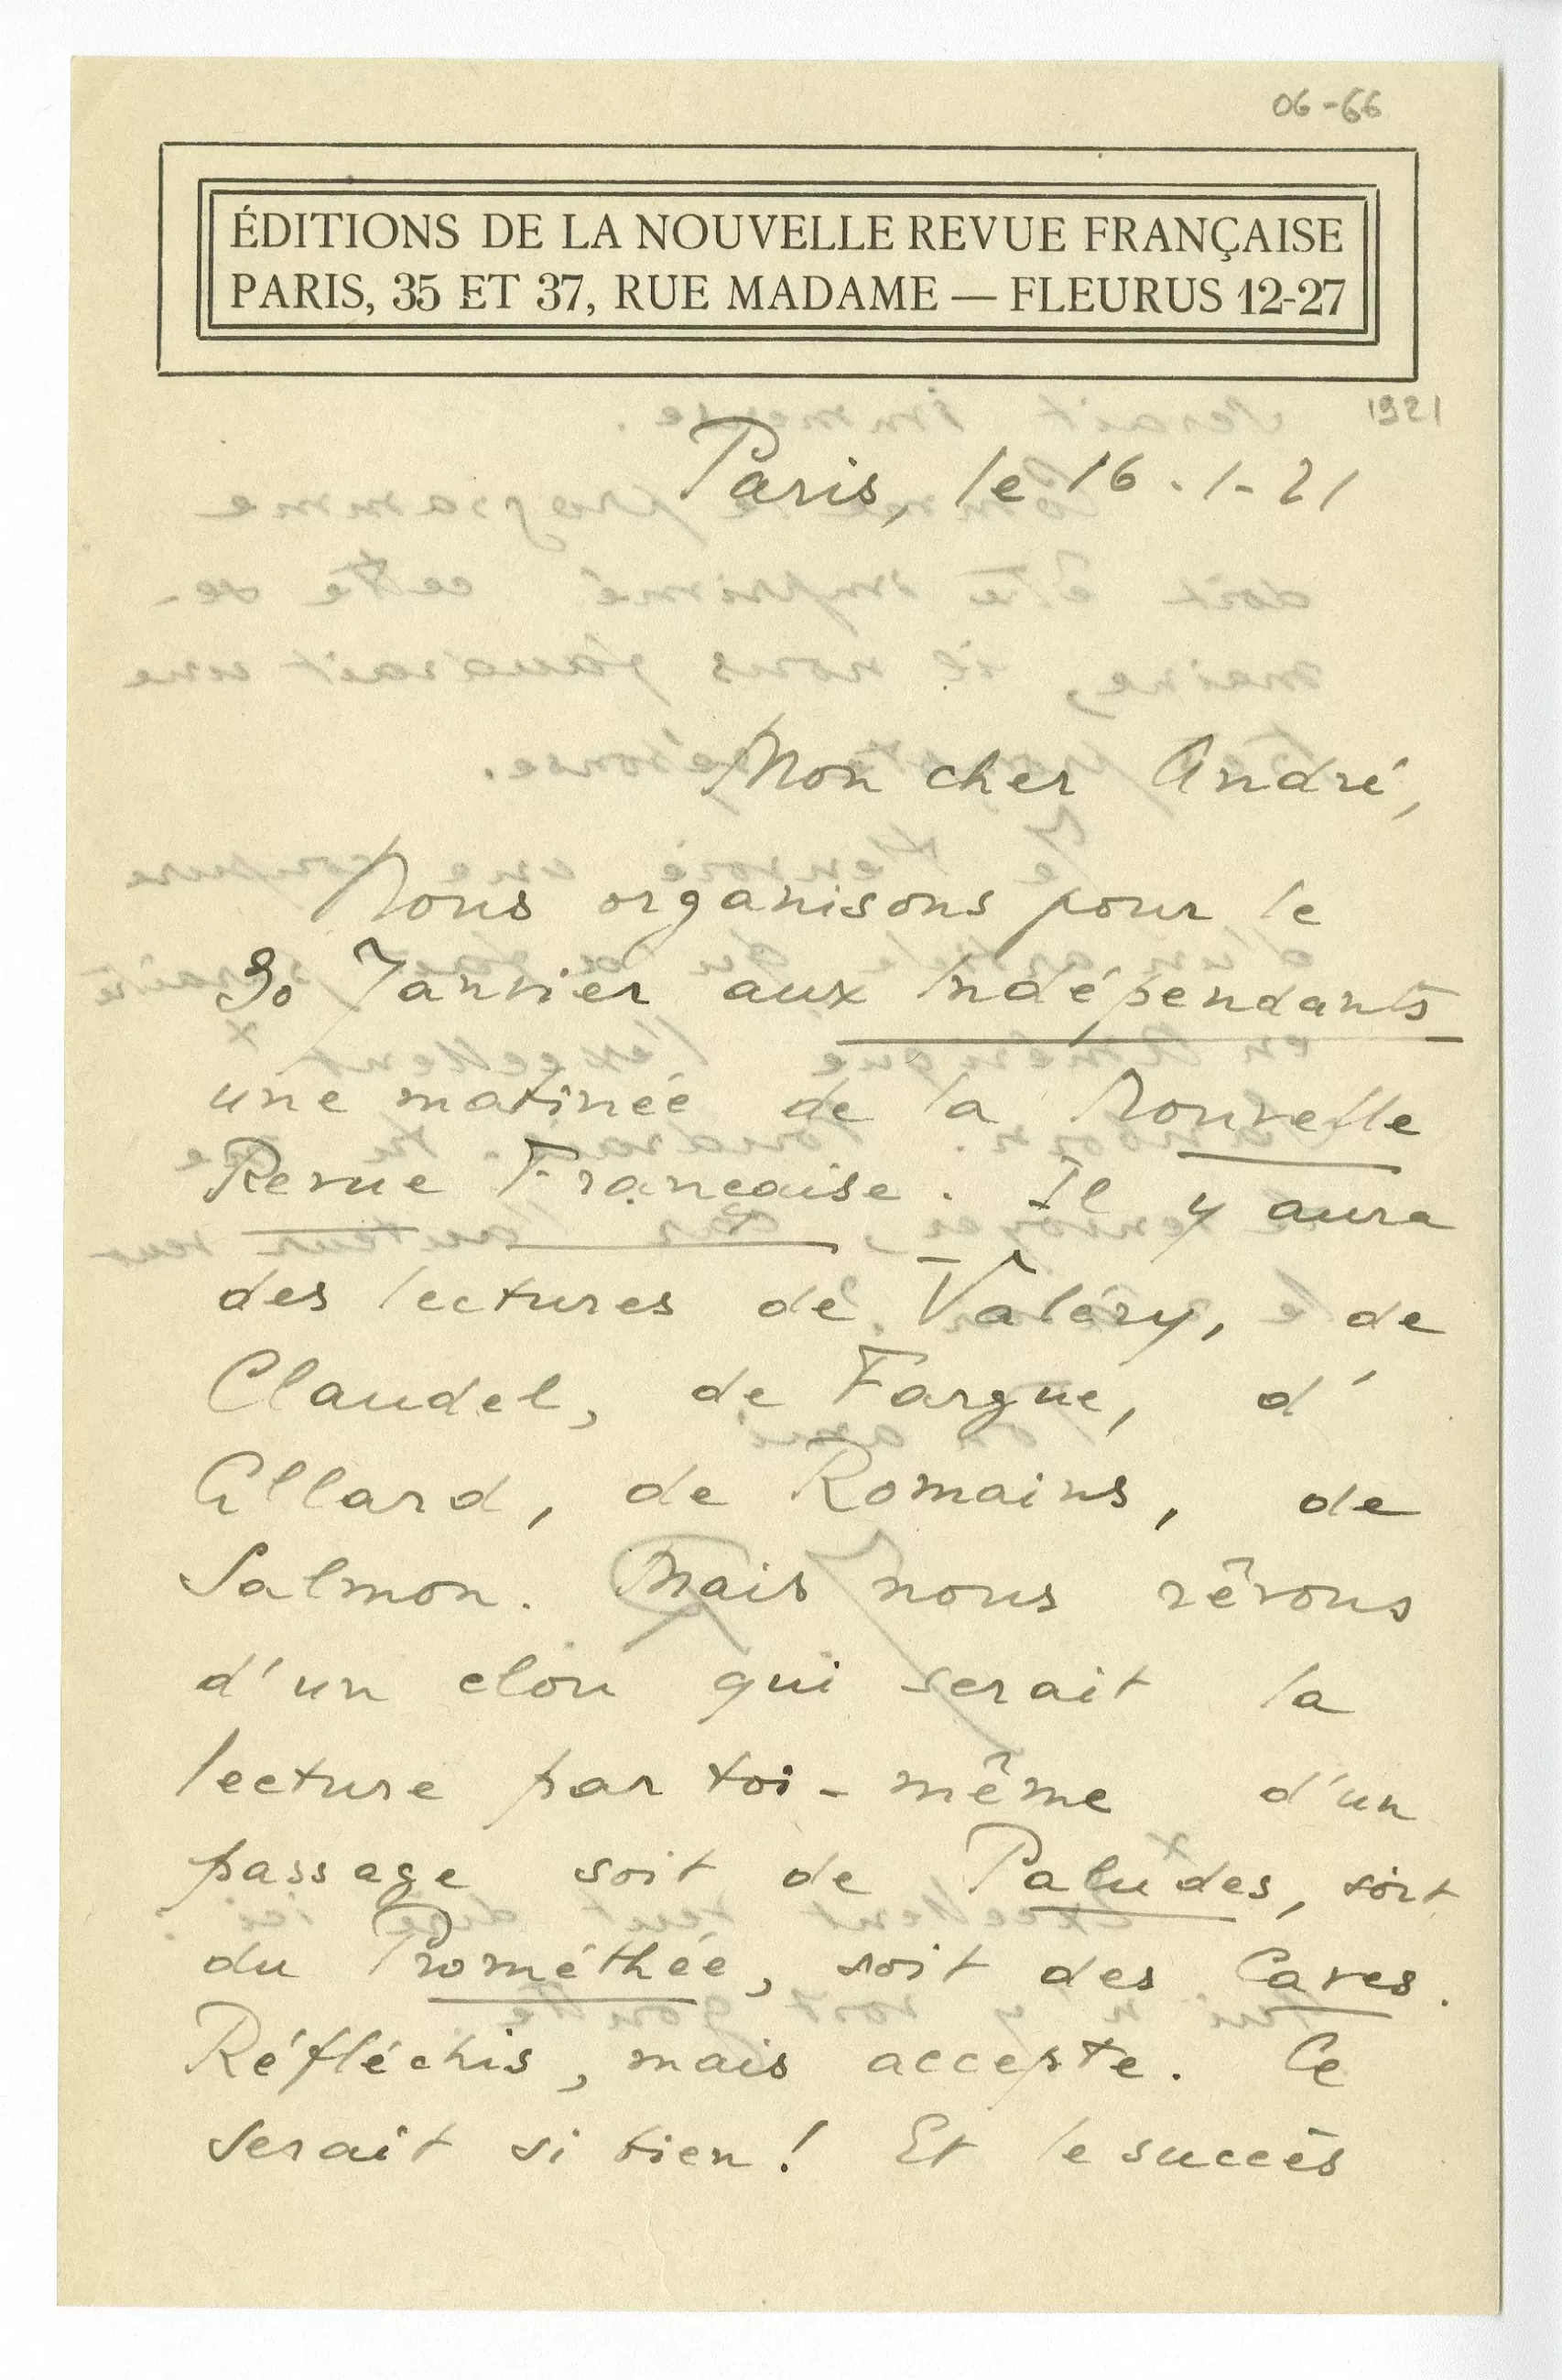 06-66
ÉDITIONS DE LA NOUVELLE REVUE FRANÇAISE
PARIS, 35 ET 37, RUE MADAME — FLEURUS 12-27
1921
Paris, le 16.1-21
Mon cher André,
Nous organisons pour le
30 Janvier aux Indépendants
une matinée de la Nouvelle
Revue Française. Il y aura
des lectures de Valéry, de
Claudel, de Fargue, d'
Allard, de Romains, de
Salmon. Mais nous rêvons
d'un clou qui serait la
lecture par toi-même d'un
passage soit de Paludes, soit
du Prométhée, soit des Caves.
Réfléchis, mais accepte. Ce
serait si bien ! Et le succès